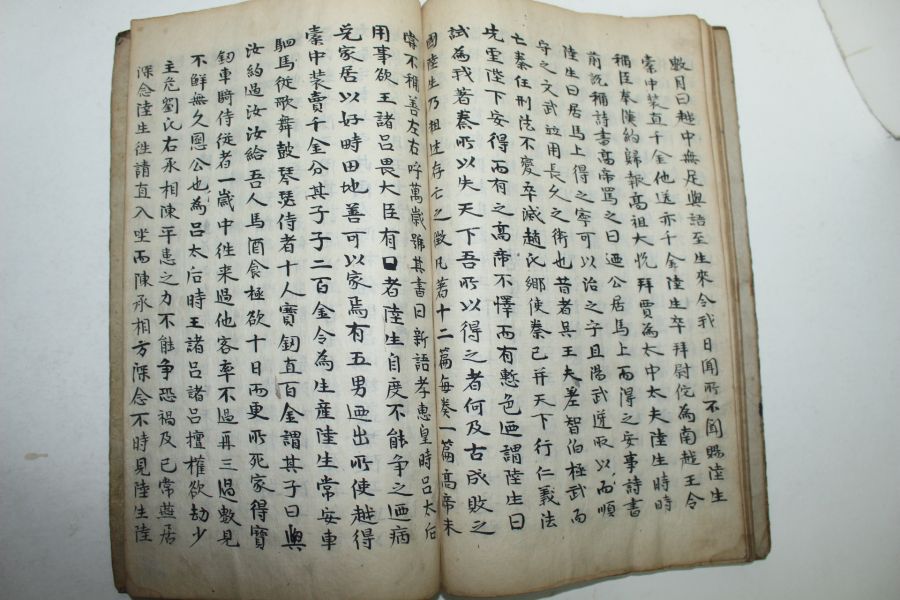 數月曰越中無足與語至生來令我日聞所不聞賜陸生
橐中裝直千金他送亦千金陸生卒拜尉佗為南越王令
稱臣奉漢約歸報高祖大悅拜賈為太中大夫陸生時時
前說稱詩書高帝罵之曰迺公居馬上而得之安事詩書
陸生曰居馬上得之寧可以治之乎且湯武逆取以而順
守之文武竝用長久之術也昔者吳王夫差智伯極武而
亡秦任刑法不變卒滅趙氏鄉使秦已并天下行仁義法
先聖陛下安得而有之高帝不懌而有慙色迺謂陸生曰
試為我著秦所以失天下吾所以得之者何及古成敗之
國陸生乃祖述存亡之徵凡著十二篇每奏一篇高帝未
嘗不稱善左右呼萬歲號其書曰新語孝惠皇時呂太后
用事欲王諸呂畏大臣有口者陸生自度不能爭之迺病
免家居以好時田地善可以家焉有五男迺出所使越得
橐中装賣千金分其子子二百金令為生產陸生常安車
駟馬從歌舞鼓琴瑟侍者十人寶釰直百金謂其子曰與
汝約過汝汝給吾人馬酒食極欲十日而更所死家得寶
釰車騎侍從者一歲中往来過他客率不過再三過數見
不鮮無久恩公也為呂太后時王諸呂諸呂擅權欲劫少
主危劉氏右承相陳平患之力不能爭恐禍及已常燕居
深念陸生往請直入坐而陳承相方深念不時見陸生陸